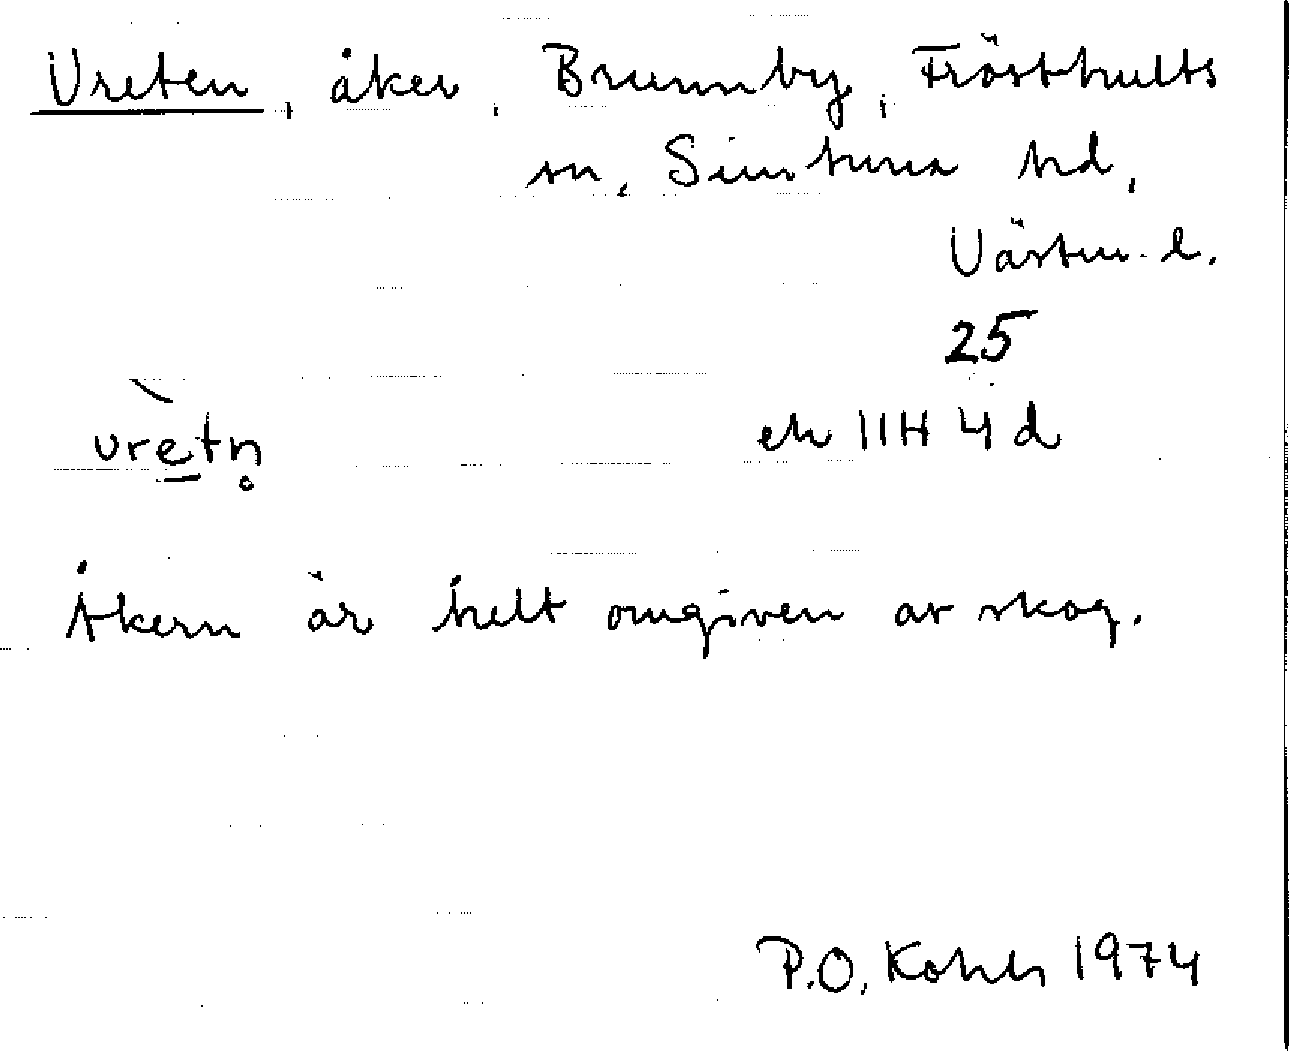 Vreten, åker, Brunnby, Frösthults
sn, Simtuna hd,
Västm. l.
25
vrètn̥
ek 11H 4 d
Åkern är helt omgiven av skog.
P.O. 1974